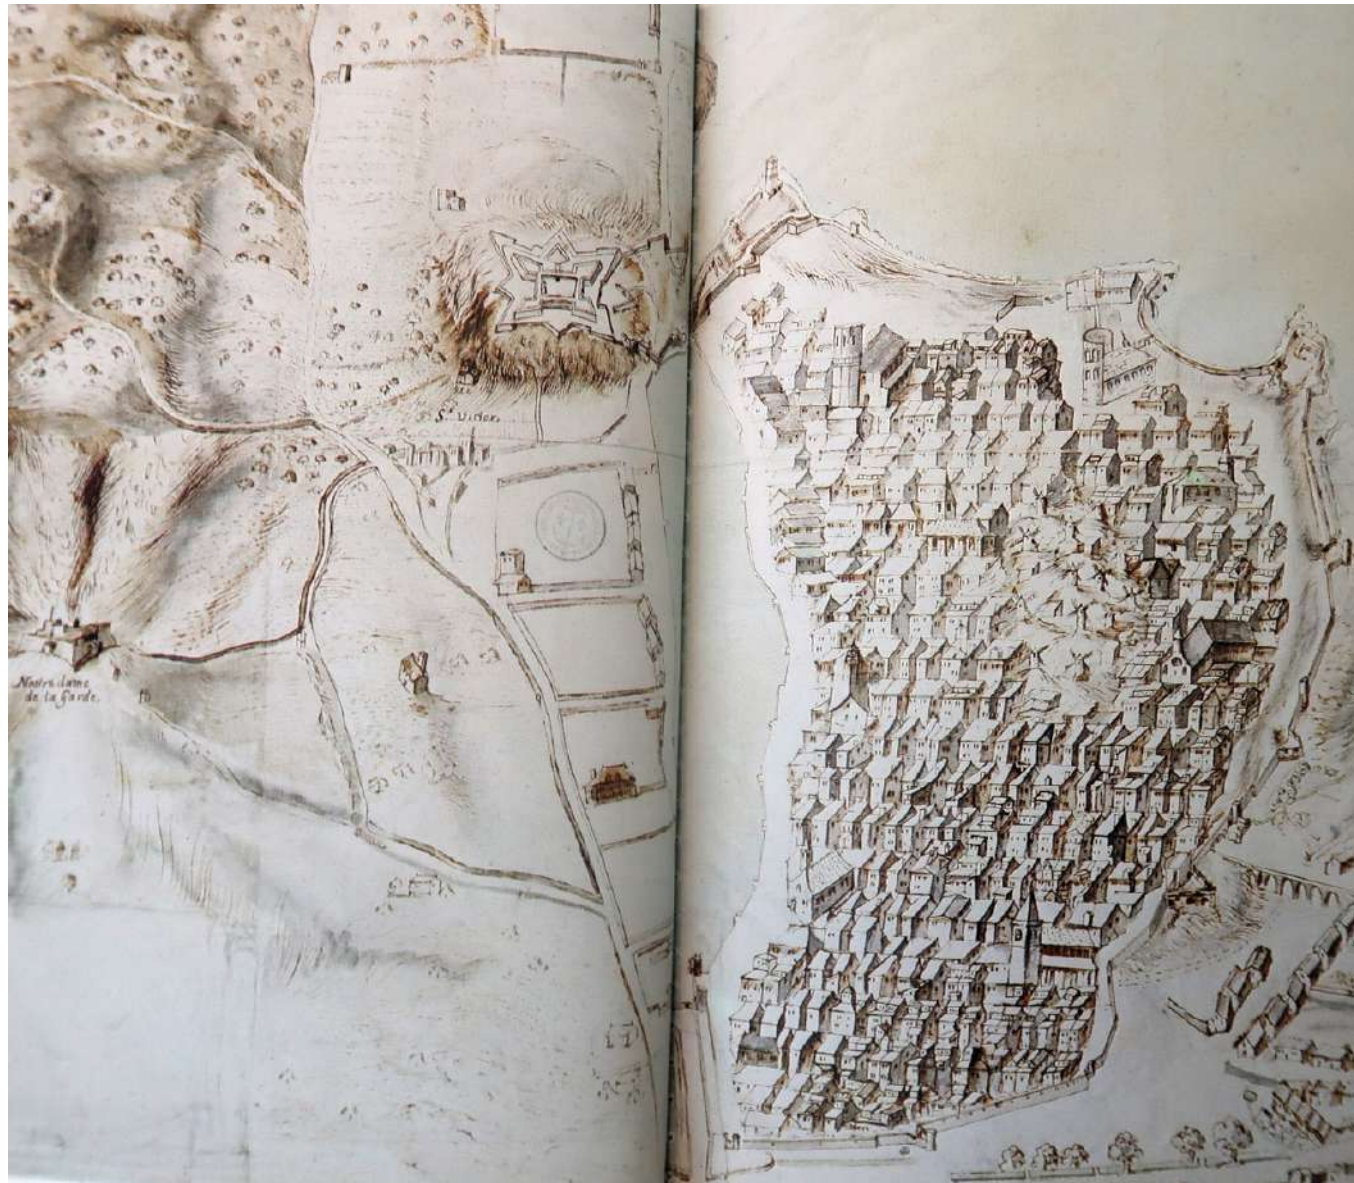 St Victor.
Nostre dame
de la garde.